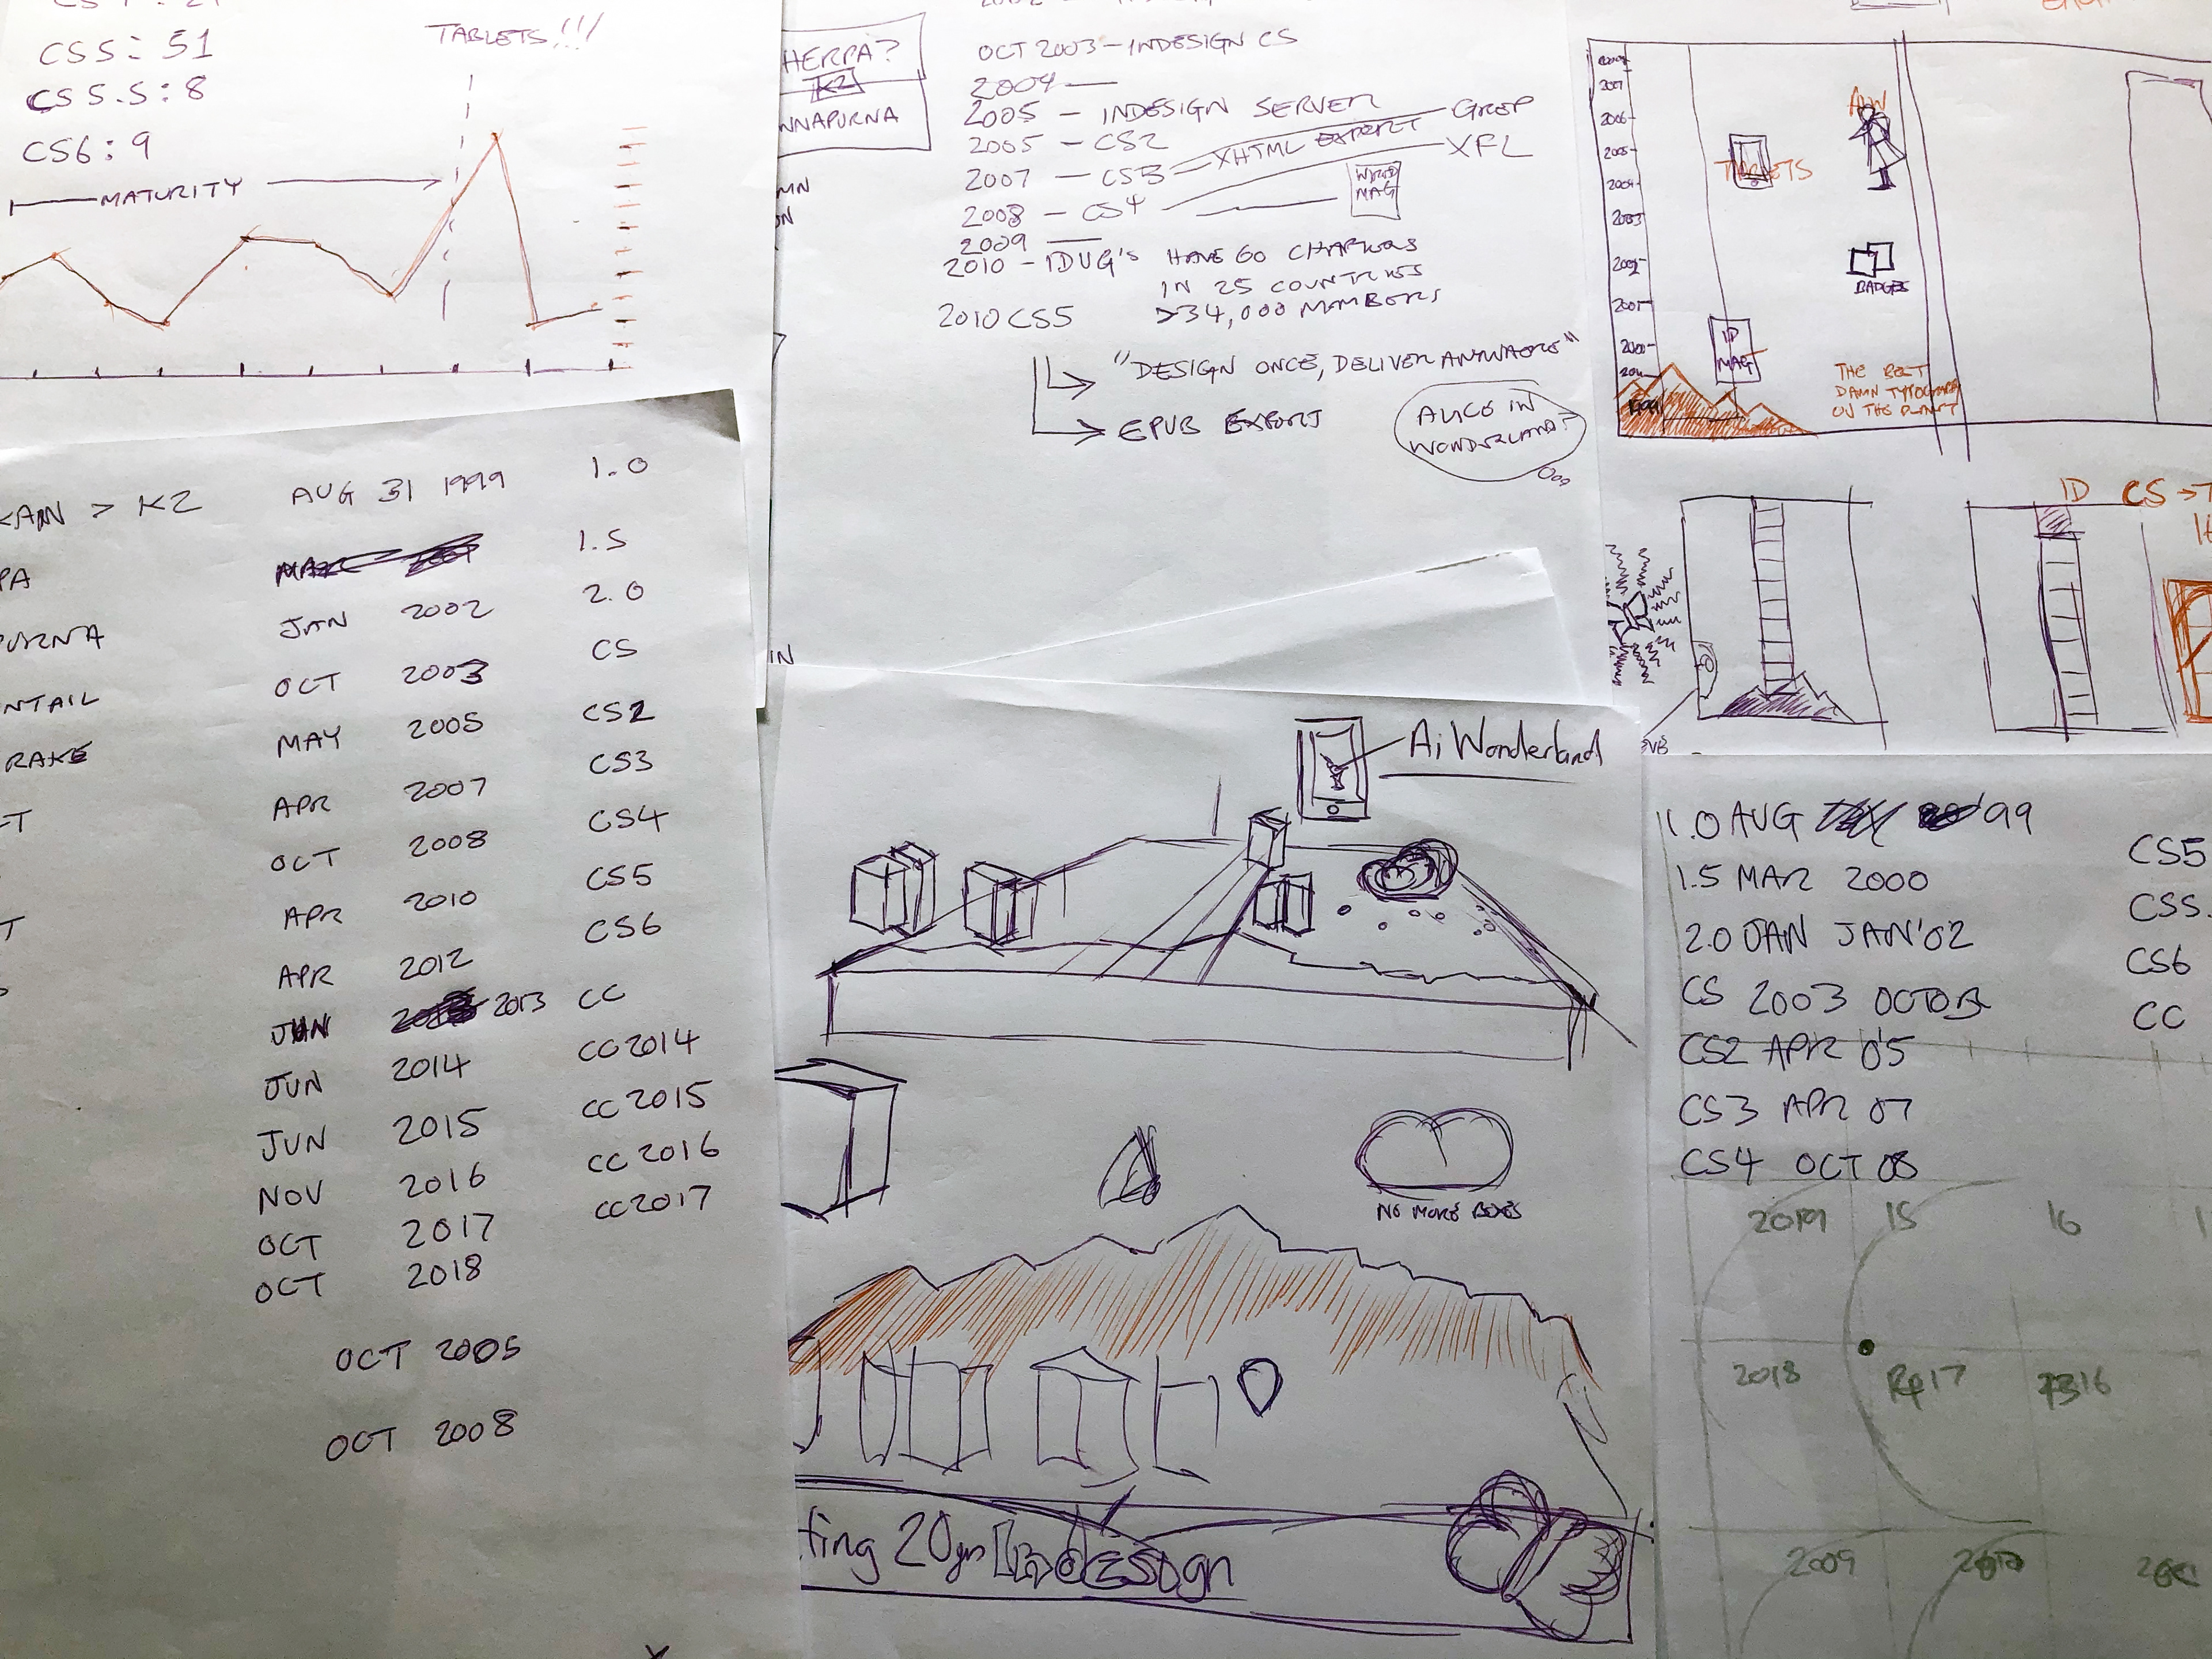 CS5: 51
CS5.5: 8
CS6: 9
TABLETS!!!
MATURITY
HERPA?
K2
NNAPURNA
MN
ON
OCT 2003 – INDESIGN CS
2004 —
2005 – INDESIGN SERVER
2005 – CS2
2007 – CS3 XHTML EXPORT GREP
2008 – CS4 XFL
WIRED
MAG
2009 —
2010 – IDUG'S HAVE 60 CHAPTERS
IN 25 COUNTRIES
>34,000 MEMBERS
2010 CS5
"DESIGN ONCE, DELIVER ANYWHERE"
EPUB EXPORT
ALICE IN
WONDERLAND?
2007
2006
2005
2004
2003
2002
2001
2000
1999
TABLETS
BADGES
ID
MAG
THE BEST
DAMN TYPOGRAPH
ON THE PLANET
ID CS →T
KAN > K2 AUG 31 1999 1.0
PA 1.5
PURNA JAN 2002 2.0
NTAIL OCT 2003 CS
RAKE MAY 2005 CS2
APR 2007 CS3
OCT 2008 CS4
APR 2010 CS5
APR 2012 CS6
JUN 2013 CC
JUN 2014 CC2014
JUN 2015 CC2015
NOV 2016 CC2016
OCT 2017 CC2017
OCT 2018
OCT 2005
OCT 2008
IN
Ai Wonderland
NO MORE BOXES
ting 20yrs InDesign
1.0 AUG 99
1.5 MAR 2000
2.0 JAN JAN'02
CS 2003 OCTOBE
CS2 APR 05
CS3 APR 07
CS4 OCT 08
CS5
CS5.
CS6
CC
2019 15 16
2018 17 16
2009 2010